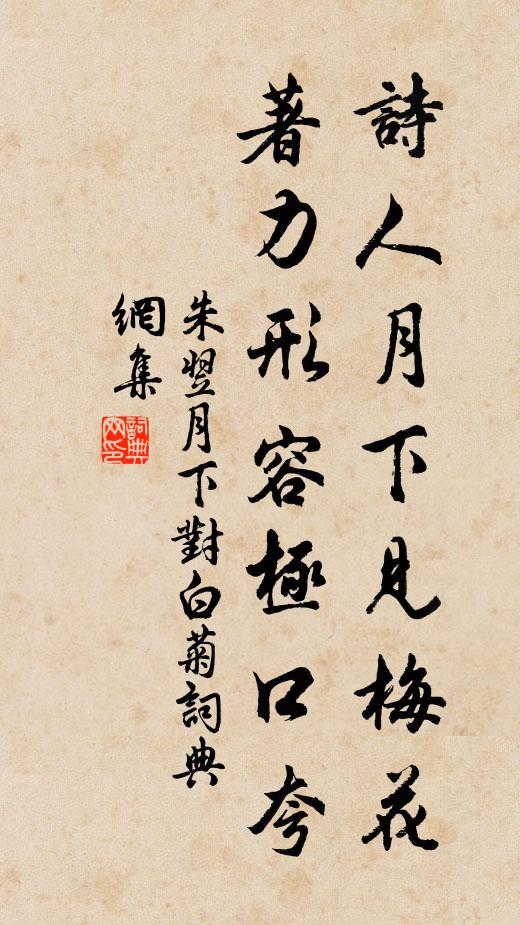 詩人月下見梅花
著力形容極口夸
朱翌月下對白菊詞典
網集
詞典
网印